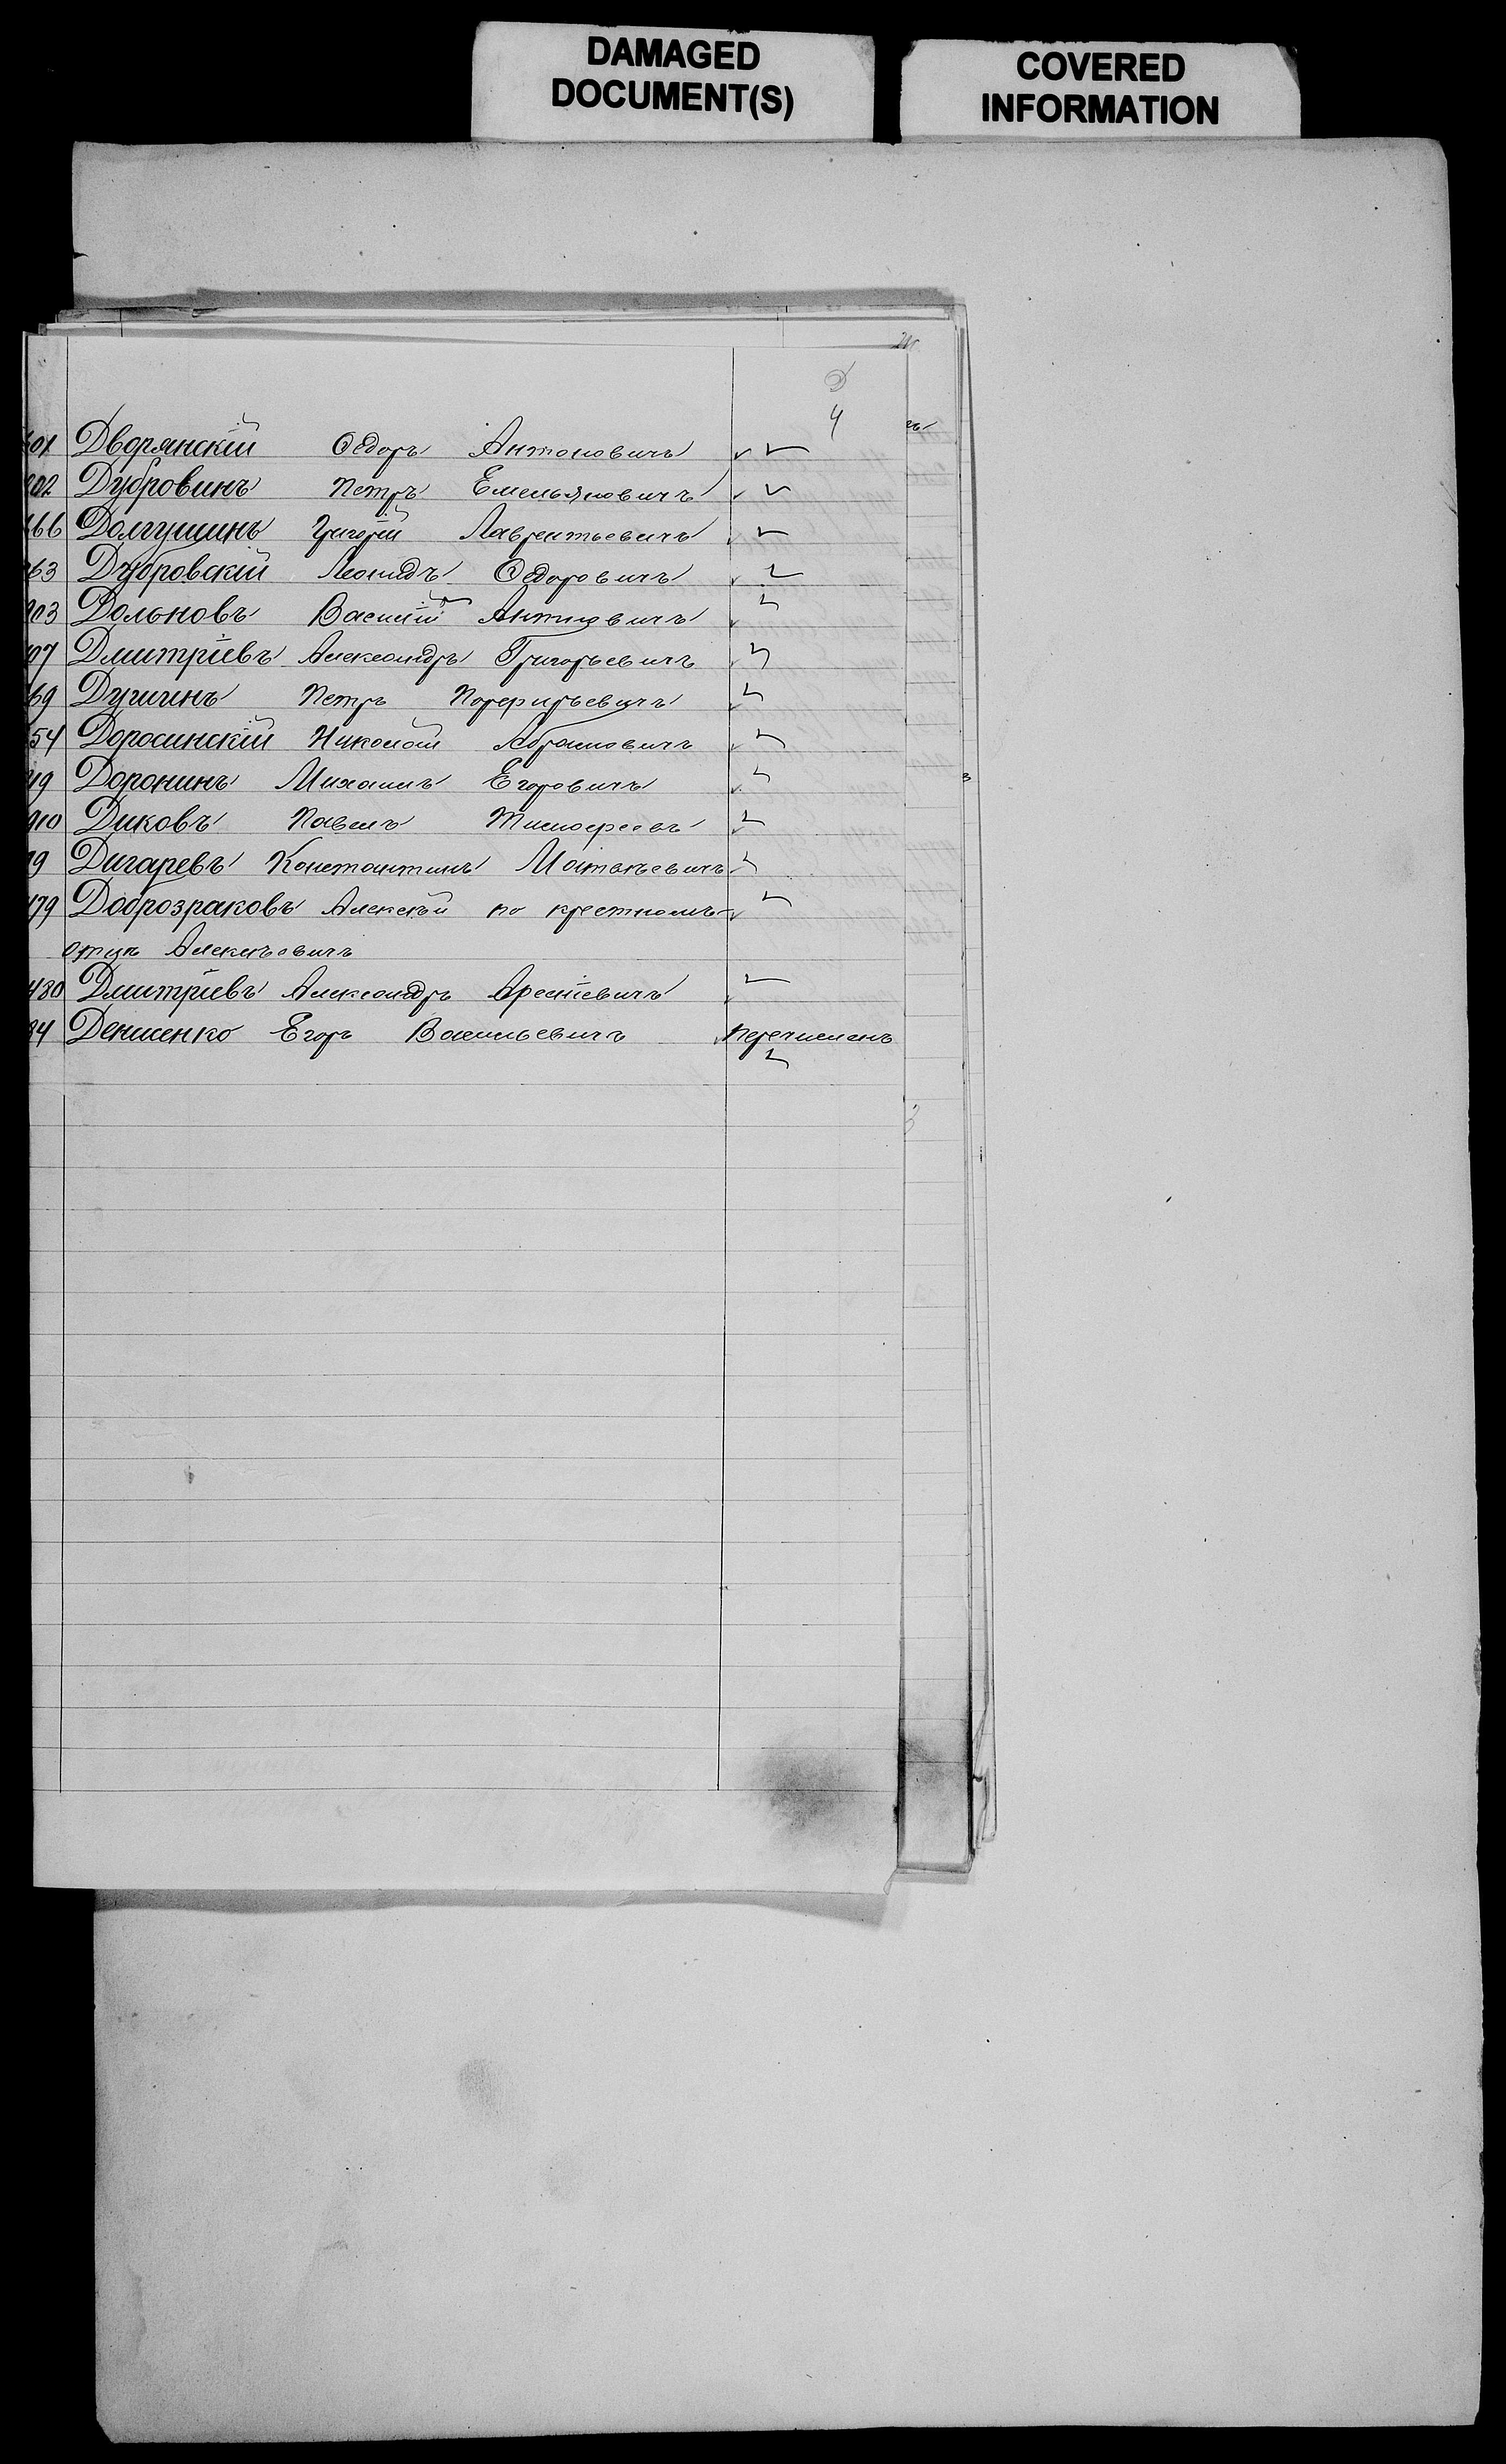 DAMAGED
DOCUMENT(S)
COVERED
INFORMATION
Д
4
01 Дворянскій Ѳедоръ Антоновичъ
902 Дубровинъ Петръ Емельяновичъ
466 Долгушинъ Григорій Лаврентьевичъ
63 Дубровскій Леонидъ Ѳедоровичъ
903 Дольновъ Василій
07 Дмитріевъ Александръ Григорьевичъ
69 Петръ Порфирьевичъ
54 Доросинскій Николай Абрамовичъ
19 Доронинъ Михаилъ Егоровичъ
910 Диковъ Павелъ Тимофеевъ
79 Дигаревъ Константинъ Матвѣевичъ
479 Доброзраковъ Алексѣй по крестному
отцу Алексѣевичъ
480 Дмитріевъ Александръ Арсеніевичъ
84 Денисенко Егоръ Васильевичъ перечисленъ